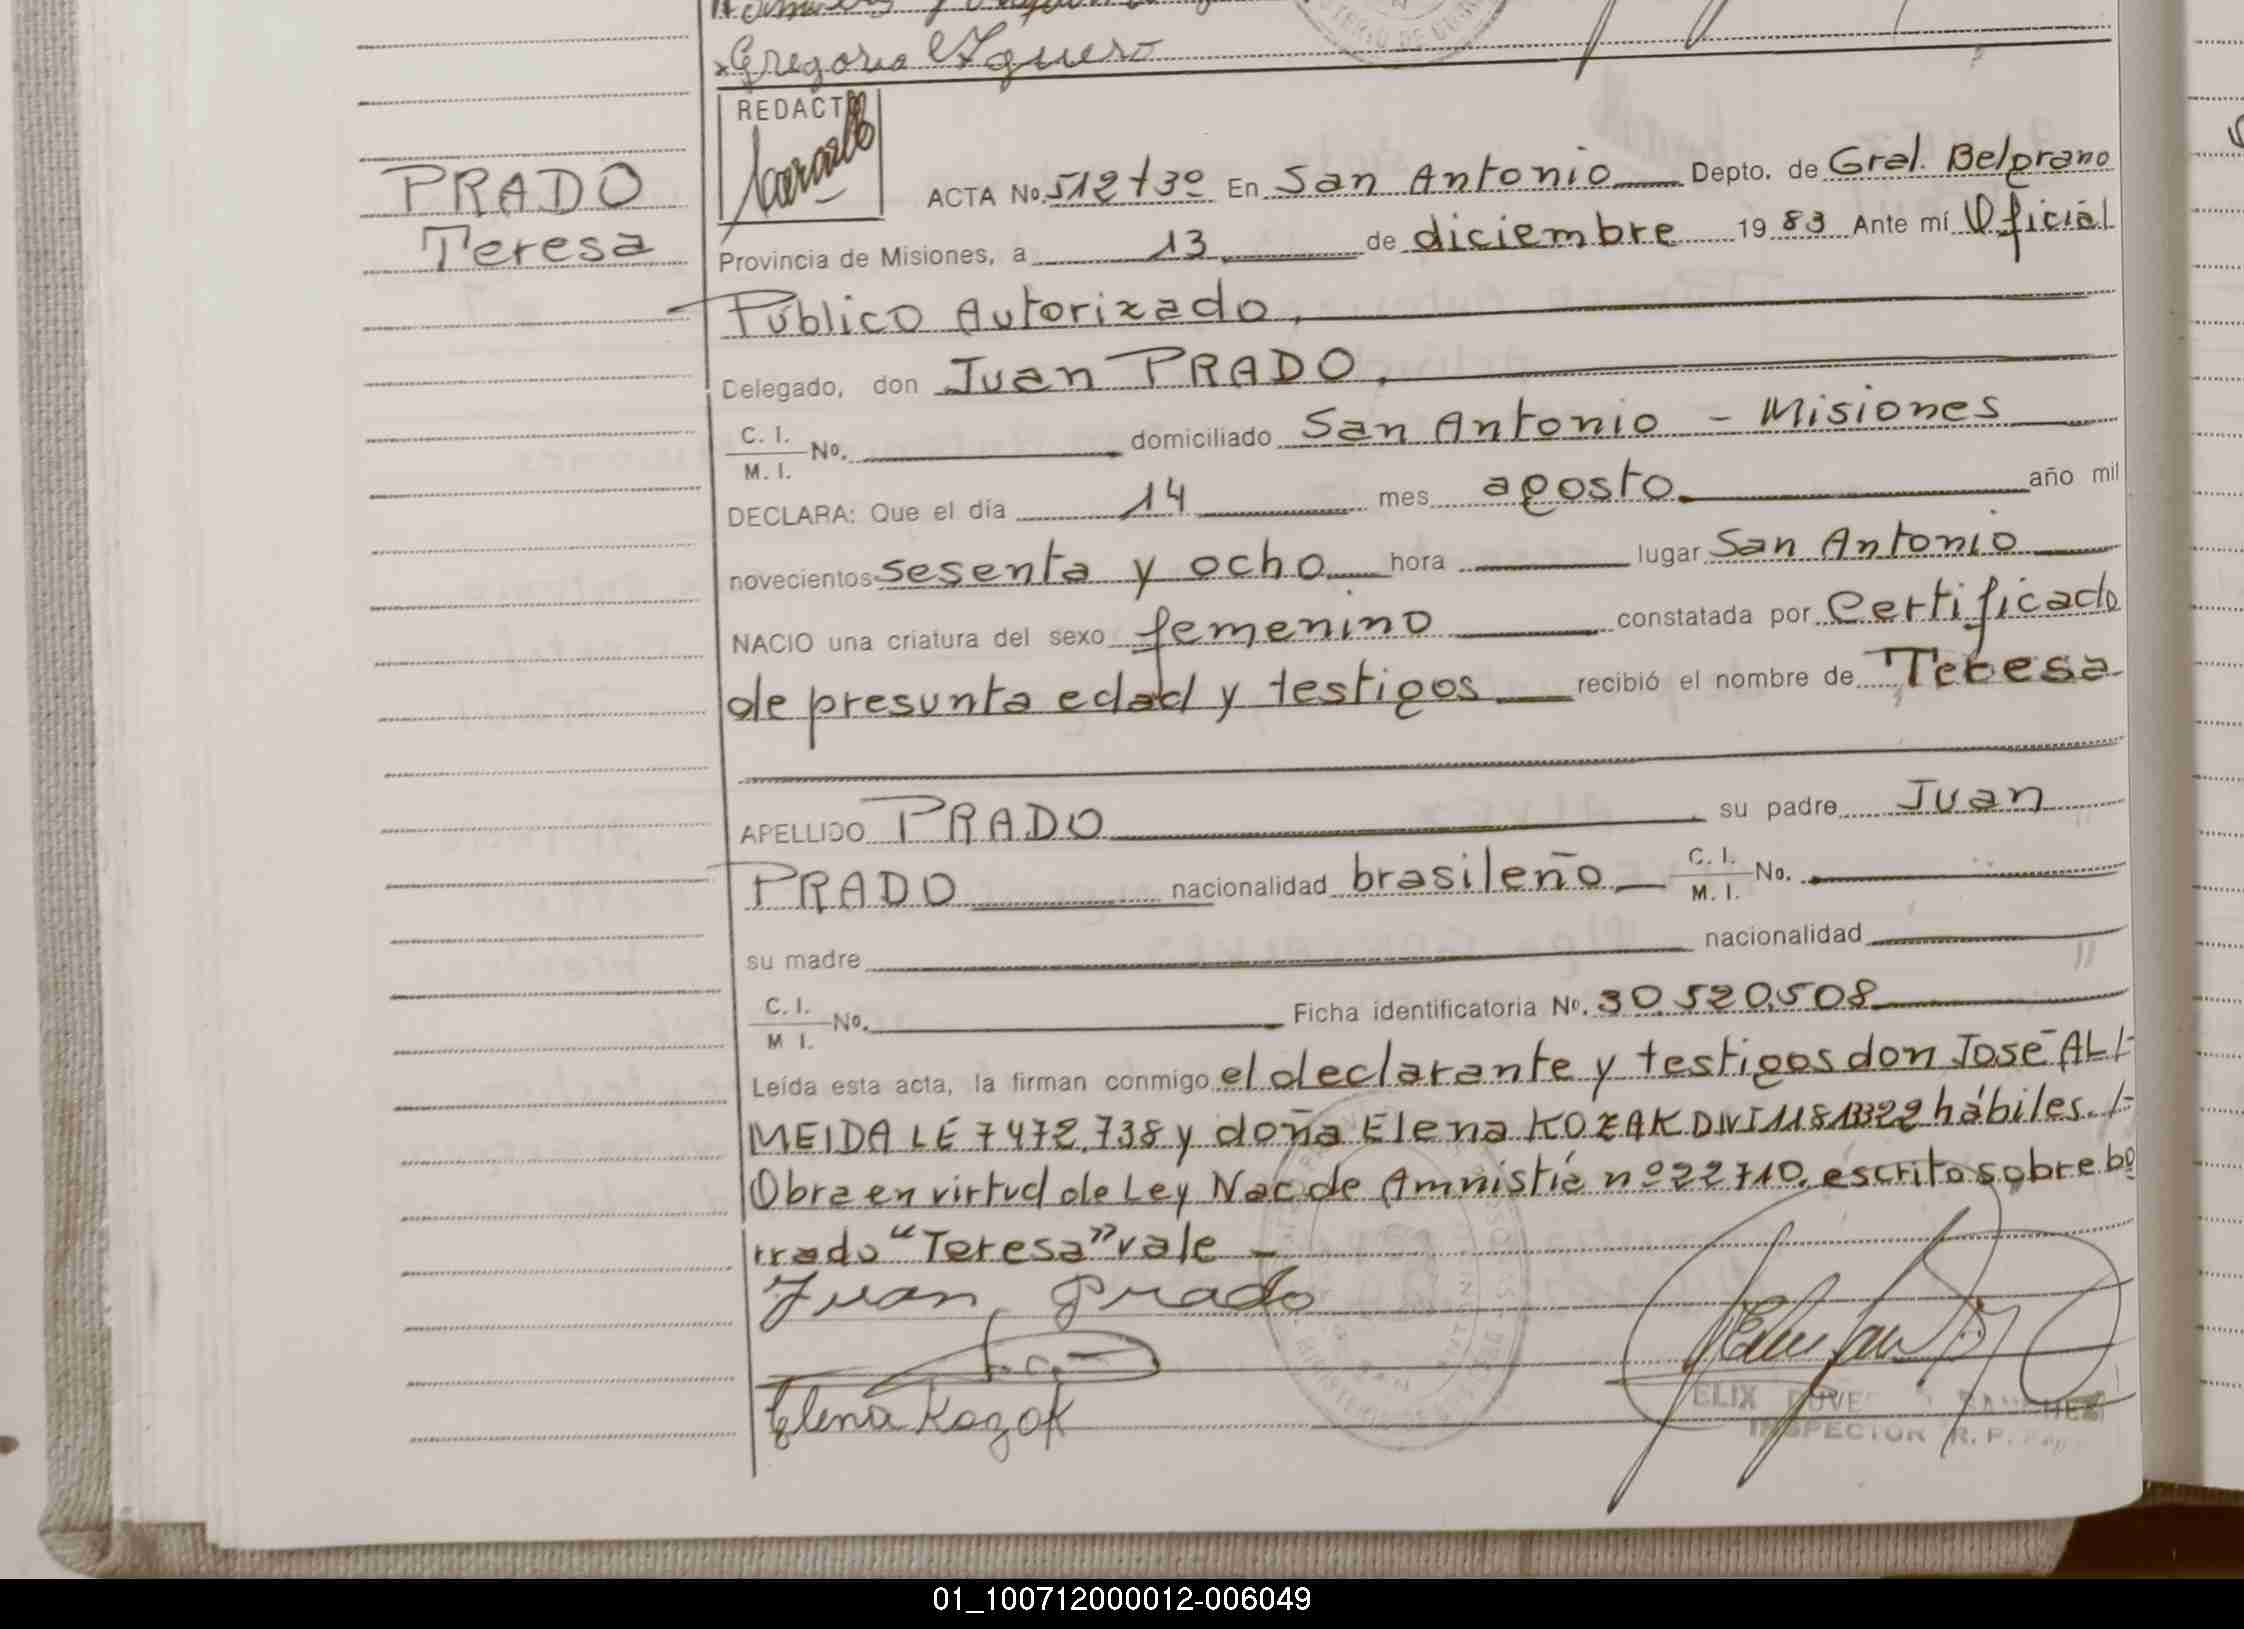 Gregoria Aguero
REDACT
PRADO
Teresa
ACTA No. 512 t 3º En San Antonio Depto. de Gral. Belgrano
Provincia de Misiones, a 13 de diciembre 1983 Ante mí Oficial
Público Autorizado,
Delegado, don Juan PRADO,
C. I.
M. I. No. domiciliado San Antonio - Misiones
DECLARA: Que el día 14 mes agosto año mil
novecientos sesenta y ocho hora lugar San Antonio
NACIO una criatura del sexo femenino constatada por Certificado
de presunta edad y testigos recibió el nombre de Teresa
APELLIDO PRADO su padre Juan
PRADO nacionalidad brasileño C. I.
M. I. No.
su madre nacionalidad
C. I.
M I. No. Ficha identificatoria No. 30.520.508
Leída esta acta, la firman conmigo el declarante y testigos don José AL/-
MEIDA LE 7472.738 y doña Elena KOZAK DNI 11813322 hábiles./-
Obra en virtud de Ley Nac de Amnistía nº 22710. escrito sobre bo
rrado "Teresa" vale -
Juan Prado
Elena Kozak
ELIX
INSPECTOR R. P.
01_100712000012-006049